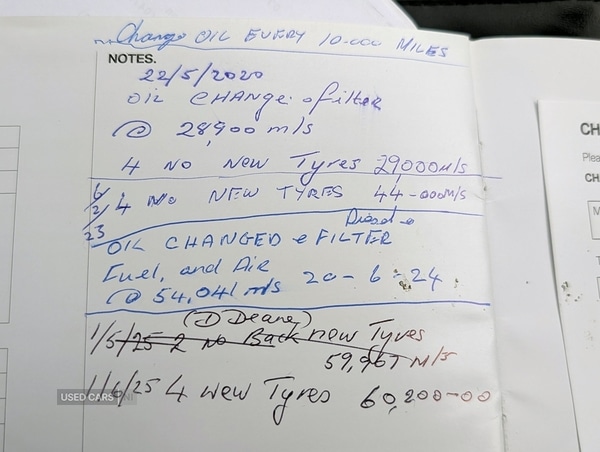 Change OIL EVERY 10.000 MILES
NOTES.
22/5/2020
OIL CHANGE & filter
@ 28,900 m/s
4 NO New Tyres 29000M/s
6/2/23 4 No NEW TYRES 44-000M/s
OIL CHANGED & FILTER
Fuel, and Air 20-6-24
@ 54,041 m/s
(D Deane)
1/5/25 2 no Back new Tyres
59,967 M/s
1/6/25 4 new Tyres 60,200-00
USED CARS NI
CH
Plea
CH
M
T